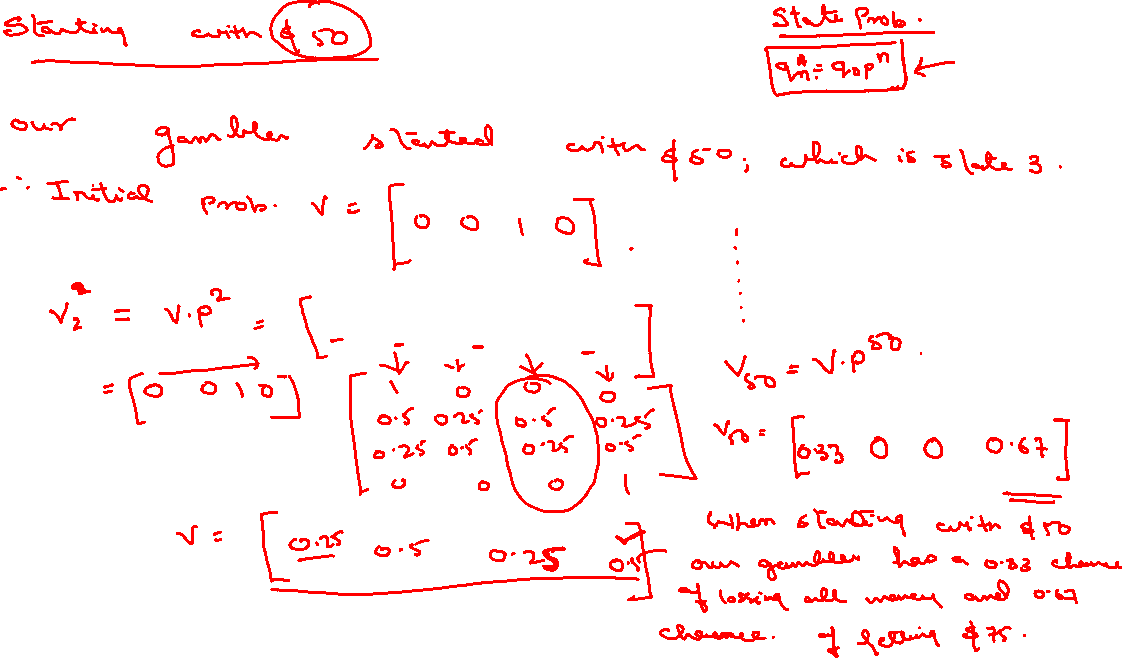 Starting with $50
State Prob.
qn* = q0pn
our gambler started with $50, which is state 3.
∴ Initial prob. V = [0 0 1 0].
V2 = V.P2 = [
= [0 0 1 0]
1 0 0 0
0.5 0.25 0.5 0.25
0.25 0.5 0.25 0.5
0 0 0 1
V = [0.25 0.5 0.25 0.5]
V50 = V.P50.
V50 = [0.33 0 0 0.67]
When starting with $50
our gambler has a 0.33 chance
of losing all money and 0.67
chance. of getting $75.